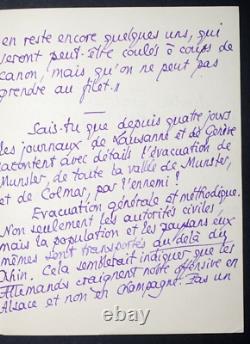 en reste encore quelques uns, qui
seront peut-être coulés à coups de
canon, mais qu'on ne peut pas
prendre au filet."
Sais-tu que depuis quatre jours
les journaux de Lausanne et de Genève
racontent avec détails l'évacuation de
Munster, de toute la vallée de Munster,
et de Colmar, par l'ennemi !
Evacuation générale et méthodique.
Non seulement les autorités civiles,
mais la population et les paysans eux
mêmes sont transportés au delà du
Rhin. Cela semblerait indiquer que les
Allemands craignent notre offensive en
Alsace et non en Champagne. Pas un